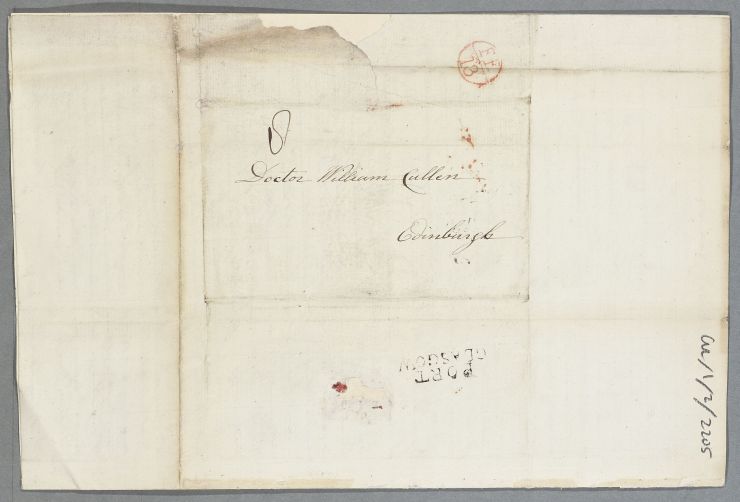 8
Doctor William Cullen
Edinburgh
PORT
GLASGOW
Cul/1/2/2205